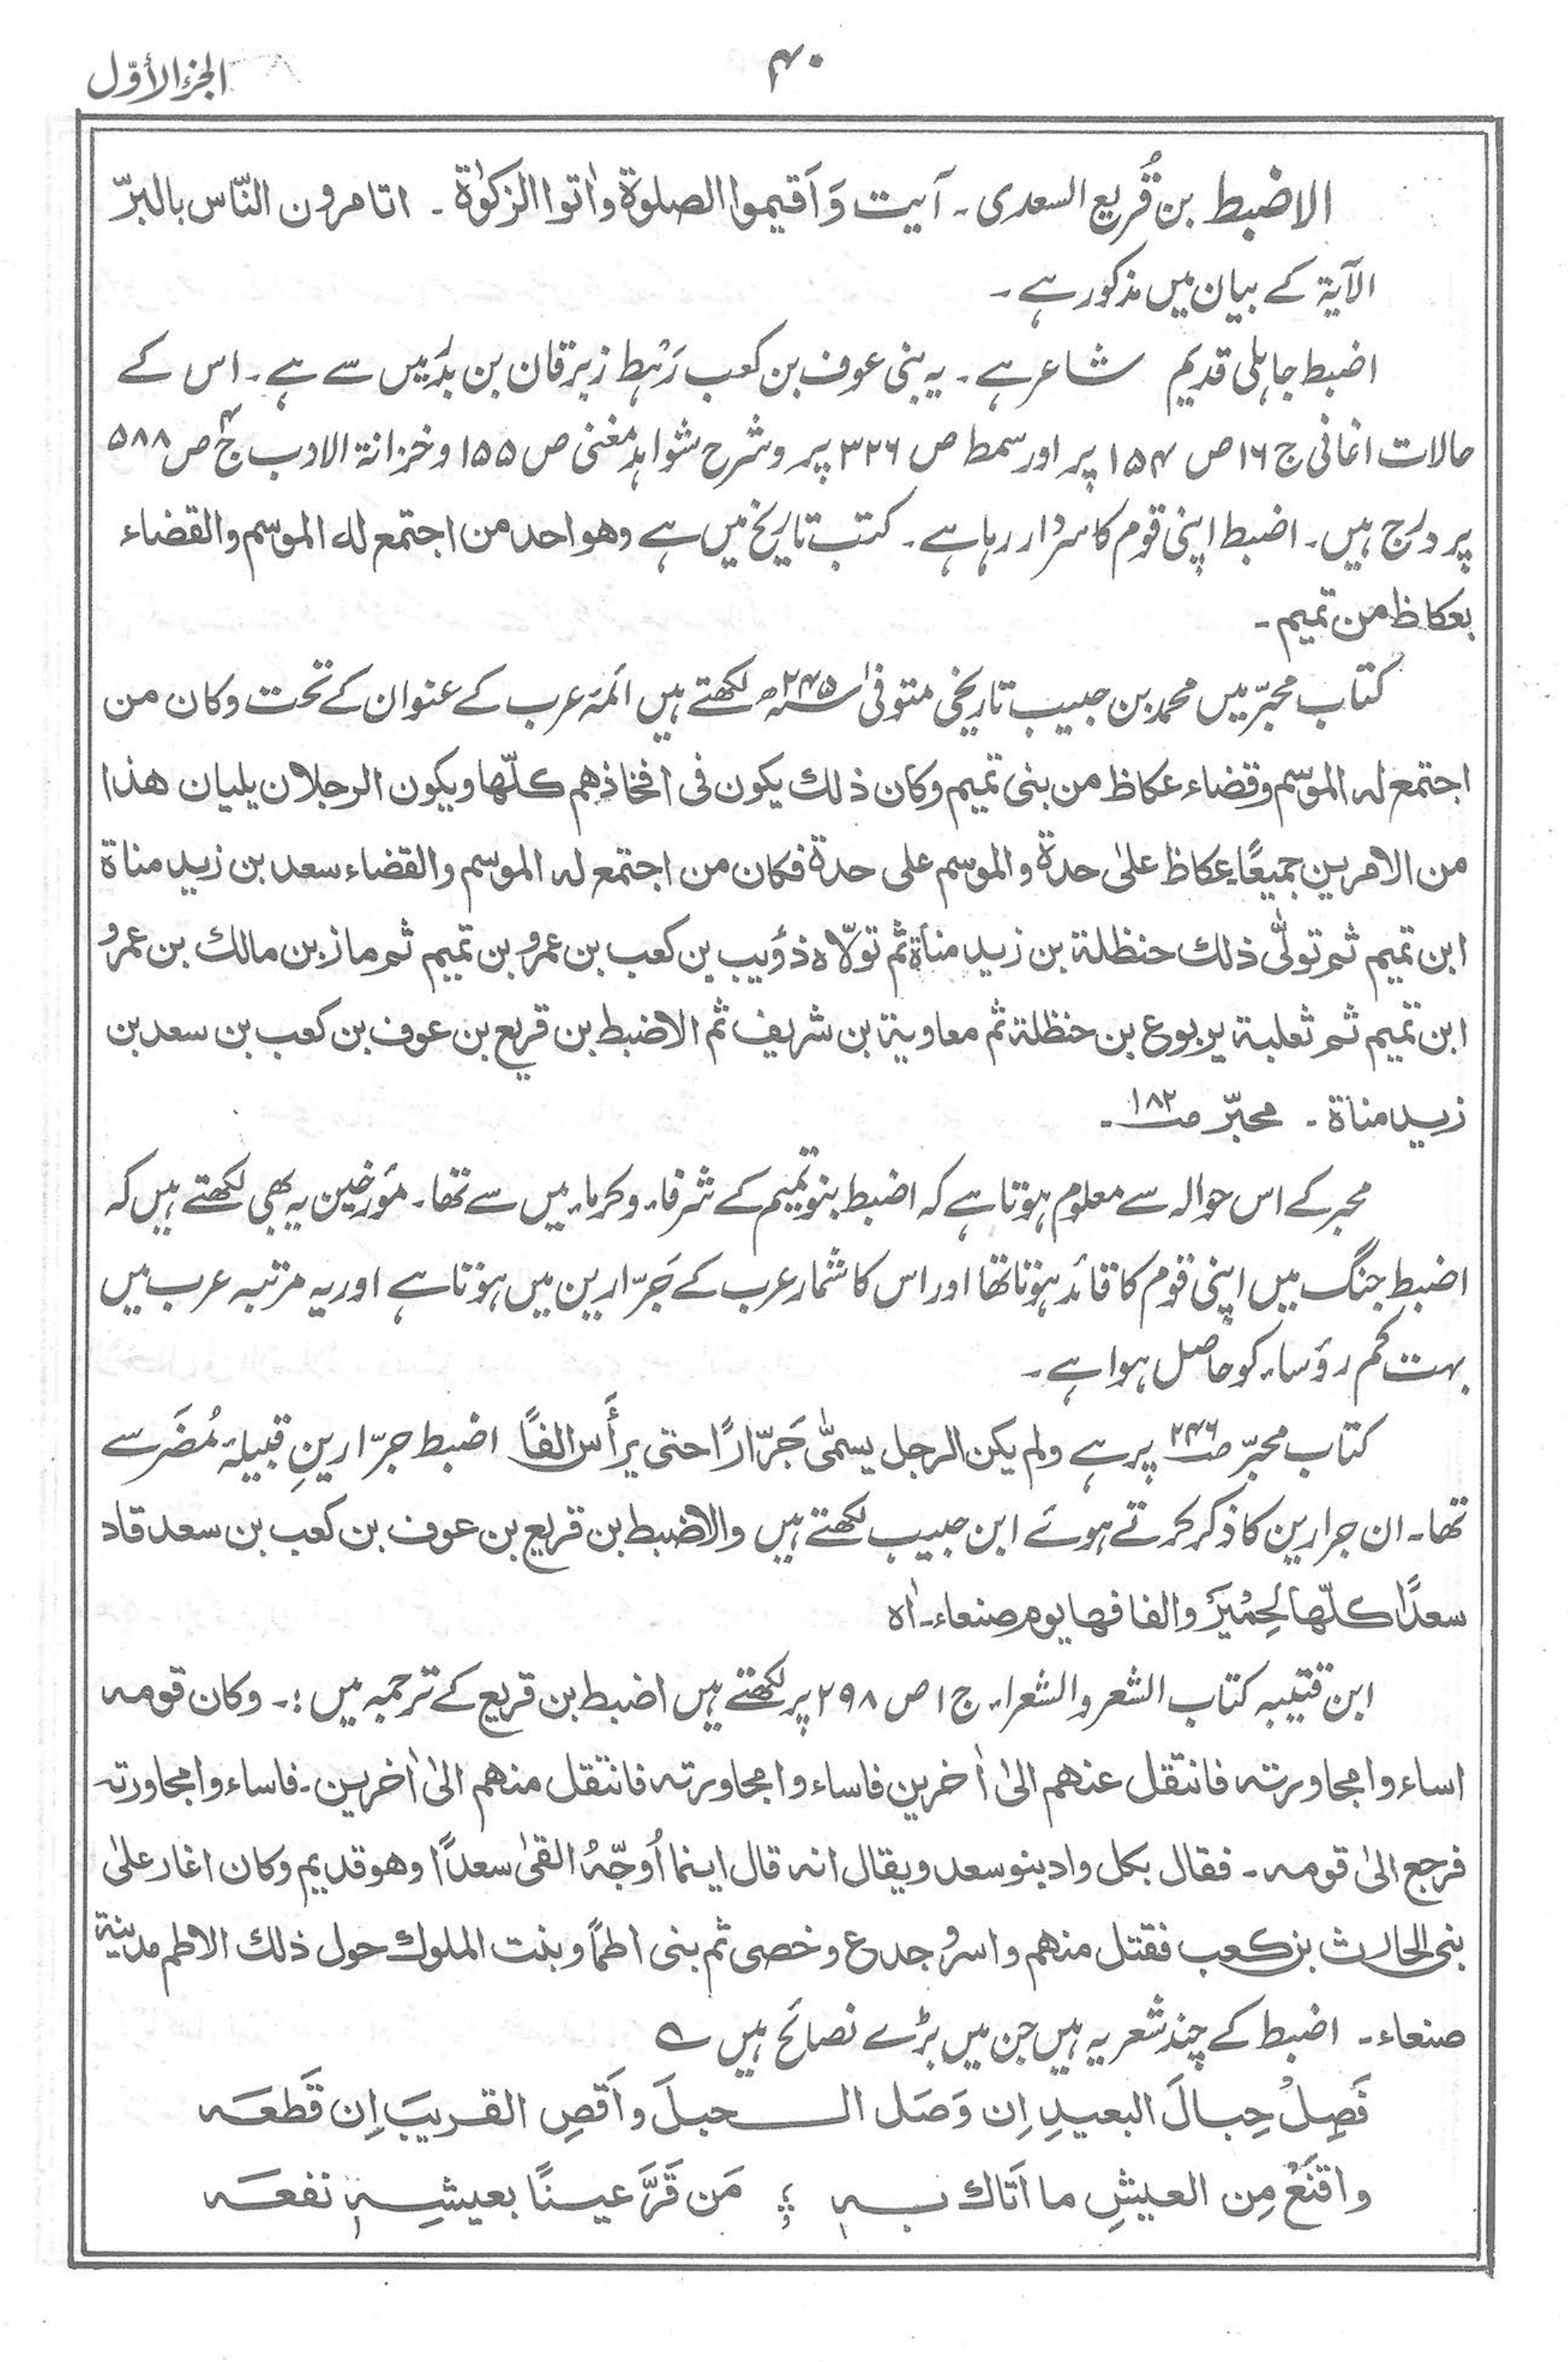 الجزء الأوّل
۴۰
الاضبط بن قُریع السعدی ۔ آیت وَاَقیموا الصلوة واٰتوا الزکوٰة ۔ اتامرون النّاس بالبرّ
الآیة کے بیان میں مذکور ہے ۔
اضبط جاہلی قدیم شاعر ہے ۔ یہ بنی عوف بن کعب رَہْط زبرقان بن بَدر میں سے ہے ۔ اس کے
حالات اغانی ج ۱۶ ص ۱۵۴ پر اور سمط ص ۳۲۶ پر و شرح شواہد مغنی ص ۱۵۵ و خزانة الادب ج ۴ ص ۵۸۸
پر درج ہیں ۔ اضبط اپنی قوم کا سردار رہا ہے ۔ کتب تاریخ میں ہے وهو احد من اجتمع له الموسم والقضاء
بعکاظ من تمیم ۔
کتاب محبّر میں محمد بن حبیب تاریخی متوفیٰ ۲۴۵ھ لکھتے ہیں ائمہ عرب کے عنوان کے تحت وکان من
اجتمع له الموسم وقضاء عکاظ من بنی تمیم وکان ذلك یکون فی افخاذهم کلّها ویکون الرجلان یلیان هذا
من الامرین جمیعًا عکاظ علیٰ حدة والموسم علی حدة فکان من اجتمع له الموسم والقضاء سعد بن زید مناة
ابن تمیم ثم تولّٰی ذلك حنظلة بن زید مناة ثم تولّاه ذؤیب بن کعب بن عمرو بن تمیم ثم مازن بن مالك بن عمرو
ابن تمیم ثم ثعلبة یربوع بن حنظلة ثم معاویة بن شریف ثم الاضبط بن قریع بن عوف بن کعب بن سعد بن
زید مناة ۔ محبّر ص ۱۸۲ ۔
محبر کے اس حوالہ سے معلوم ہوتا ہے کہ اضبط بنو تمیم کے شرفاء و کرماء میں سے تھا ۔ مؤرخین یہ بھی لکھتے ہیں کہ
اضبط جنگ میں اپنی قوم کا قائد ہوتا تھا اور اس کا شمار عرب کے جَرّارین میں ہوتا ہے اور یہ مرتبہ عرب میں
بہت کم رؤساء کو حاصل ہوا ہے ۔
کتاب محبّر ص ۲۴۶ پر ہے ولم یکن الرجل یسمّٰی جَرّارًا حتی یرأَس الفًا اضبط جرّارینِ قبیلۂ مُضَر سے
تھا ۔ ان جرارین کا ذکر کرتے ہوئے ابن حبیب لکھتے ہیں والاضبط بن قریع بن عوف بن کعب بن سعد قاد
سعدًا کلّها لحِمْیَرَ والفافها یوم صنعاء ۔ اٰه
ابن قتیبہ کتاب الشعر والشعراء ج ۱ ص ۲۹۸ پر لکھتے ہیں اضبط بن قریع کے ترجمہ میں :۔ وکان قومه
اساءوا مجاورته فانتقل عنهم الیٰ اٰخرین فاساءوا مجاورته فانتقل منهم الیٰ اٰخرین ۔ فاساءوا مجاورته
فرجع الیٰ قومه ۔ فقال بکل واد بنو سعد ویقال انه قال اینما اُوَجّهُ القیٰ سعدًا وهو قدیم وکان اغار علیٰ
بنی الحارث بن کعب فقتل منهم واسر و جدع وخصی ثم بنی اطمًا وبنت الملوك حول ذلك الاطم مدینة
صنعاء ۔ اضبط کے چند شعر یہ ہیں جن میں بڑے نصائح ہیں ؎
فَصِلْ حِبالَ البعیدِ اِن وَصَل الحبلَ واَقصِ القریبَ اِن قَطعَه
واقنَعْ مِن العیشِ ما اَتاك به ؛ مَن قَرَّ عینًا بعیشِهٖ نفعَه